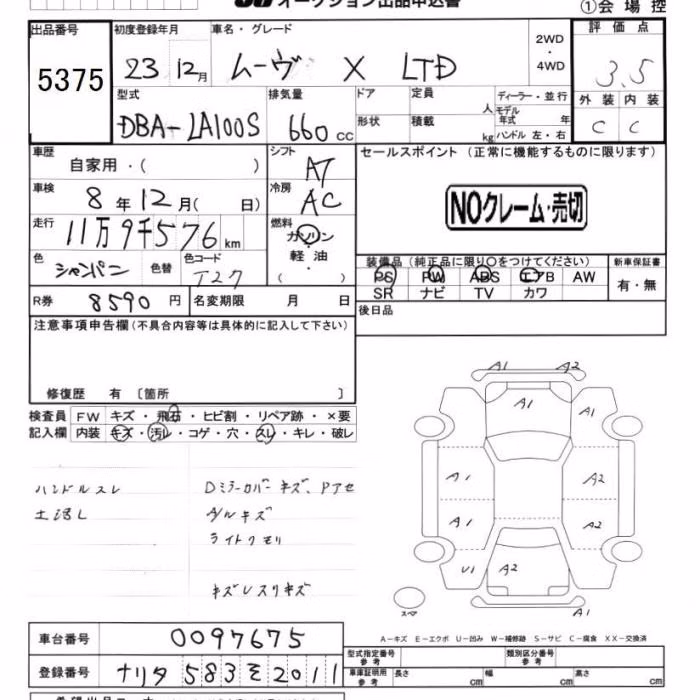 オークション出品申込書
①会場控
出品番号
5375
初度登録年月
23 12月
車名・グレード
ムーヴ X LTD
2WD
・
4WD
評価点
3.5
外装 内装
C C
型式
DBA-LA100S
排気量
660 CC
ドア
形状
定員 人
積載 kg
ディーラー・並行
モデル年式 年
ハンドル 左・右
車歴
自家用・( )
シフト
AT
車検
8年12月( 日)
冷房
AC
走行
11万9千576 km
燃料
ガソリン
・
軽油
・
( )
色
シャンパン
色替
色コード
T27
R券
8590円
名変期限 月 日
セールスポイント (正常に機能するものに限ります)
NOクレーム・売切
装備品 (純正品に限り〇をつけてください)
PS PW ABS エアB AW
SR ナビ TV カワ
新車保証書
有・無
後日品
注意事項申告欄(不具合内容等は具体的に記入して下さい)
修復歴 有 〔箇所 〕
検査員 FW キズ・飛石・ヒビ割・リペア跡・×要
記入欄 内装 キズ・汚レ・コゲ・穴・スレ・キレ・破レ
ハンドルスレ
土汚レ
Dミラーカバーキズ、Pアセ
A/ルキズ
ライトクモリ
キズUスリキズ
A1 A2
A1 A1
A1 A2
A1 A2
U1 A2
スペア
A1
A-キズ E-エクボ U-凹み W-補修跡 S-サビ C-腐食 XX-交換済
車台番号
0097675
登録番号
ナリタ 583 を 2011
型式指定番号
参考
類別区分番号
参考
車庫証明用
参考
長さ cm 幅 cm 高さ cm